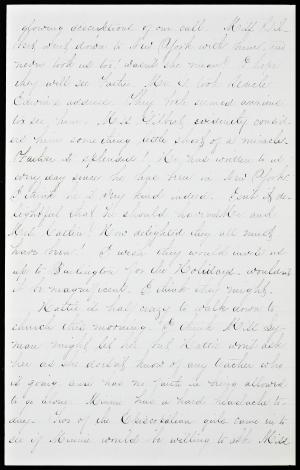 glowing descriptions of our call. Miss
went down to New York with them, and
never took us too! wasn't she mean? I hope
they will see Father. Mr. G. took Uncle
Edwin's address. They both seemed anxious
to see him. Mrs. Gilbert evidently consid-
ers him something little short of a miracle.
Father is splendid! He has written to us
every day since he has been in New York.
I think he is very kind indeed. Isn't it de-
lightful that he should have met Mr. and
Mrs. Catlin! How delighted they all must
have been! I wish they would invite us
up to Burlington for the Holidays. wouldn't
it be magnificent. I think they might.
Hattie is half crazy to walk down to
church this morning. I think Miss Sey-
mour might let her, but Hattie won't ask
her as she doesn't know of any teacher who
is going and has no faith in being allowed
to go alone. Minnie has a hard headache to-
day. Two of the Episcopalian girls came in to
see if Minnie would be willing to ask Miss